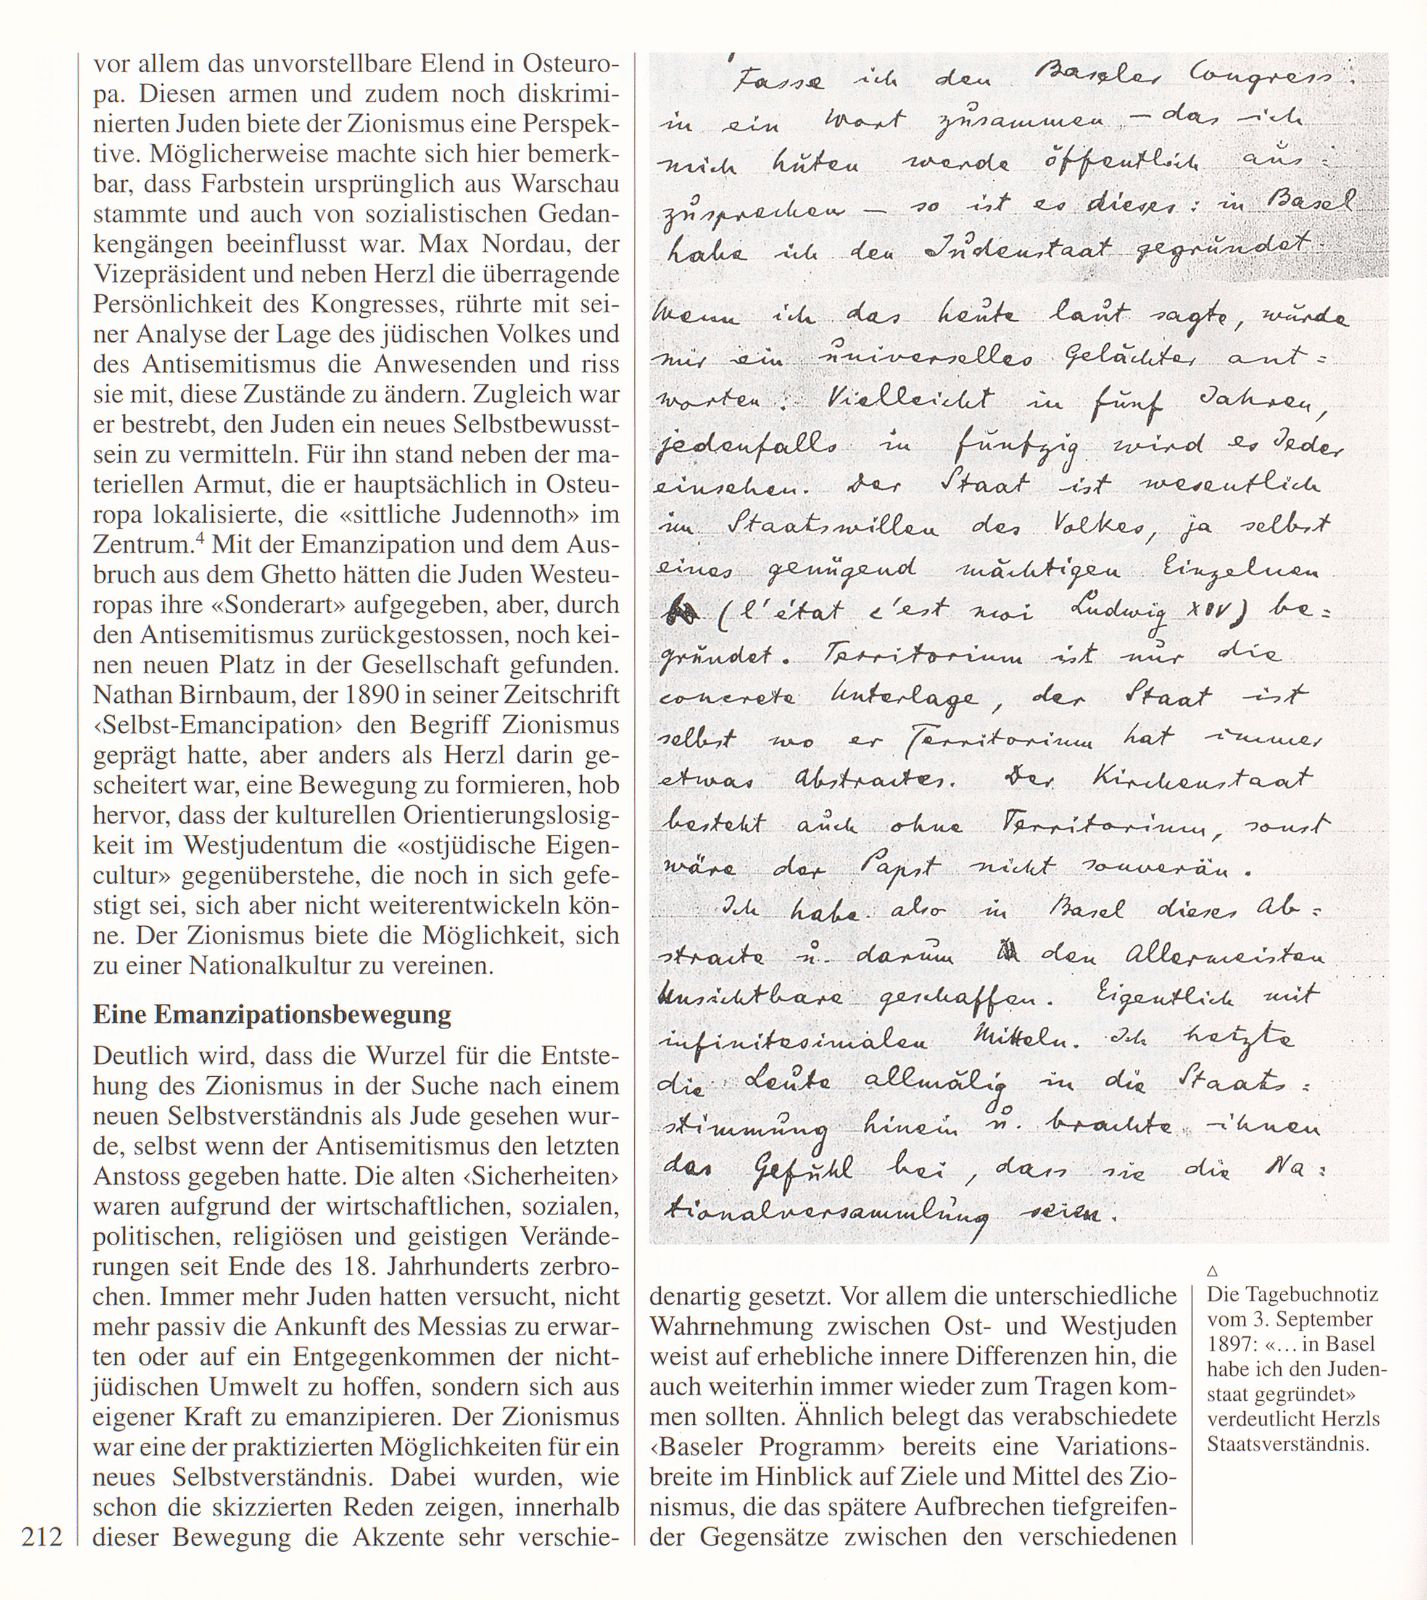 vor allem das unvorstellbare Elend in Osteuro-
pa. Diesen armen und zudem noch diskrimi-
nierten Juden biete der Zionismus eine Perspek-
tive. Möglicherweise machte sich hier bemerk-
bar, dass Farbstein ursprünglich aus Warschau
stammte und auch von sozialistischen Gedan-
kengängen beeinflusst war. Max Nordau, der
Vizepräsident und neben Herzl die überragende
Persönlichkeit des Kongresses, rührte mit sei-
ner Analyse der Lage des jüdischen Volkes und
des Antisemitismus die Anwesenden und riss
sie mit, diese Zustände zu ändern. Zugleich war
er bestrebt, den Juden ein neues Selbstbewusst-
sein zu vermitteln. Für ihn stand neben der ma-
teriellen Armut, die er hauptsächlich in Osteu-
ropa lokalisierte, die «sittliche Judennoth» im
Zentrum.⁴ Mit der Emanzipation und dem Aus-
bruch aus dem Ghetto hätten die Juden Westeu-
ropas ihre «Sonderart» aufgegeben, aber, durch
den Antisemitismus zurückgestossen, noch kei-
nen neuen Platz in der Gesellschaft gefunden.
Nathan Birnbaum, der 1890 in seiner Zeitschrift
‹Selbst-Emancipation› den Begriff Zionismus
geprägt hatte, aber anders als Herzl darin ge-
scheitert war, eine Bewegung zu formieren, hob
hervor, dass der kulturellen Orientierungslosig-
keit im Westjudentum die «ostjüdische Eigen-
cultur» gegenüberstehe, die noch in sich gefe-
stigt sei, sich aber nicht weiterentwickeln kön-
ne. Der Zionismus biete die Möglichkeit, sich
zu einer Nationalkultur zu vereinen.
Eine Emanzipationsbewegung
Deutlich wird, dass die Wurzel für die Entste-
hung des Zionismus in der Suche nach einem
neuen Selbstverständnis als Jude gesehen wur-
de, selbst wenn der Antisemitismus den letzten
Anstoss gegeben hatte. Die alten ‹Sicherheiten›
waren aufgrund der wirtschaftlichen, sozialen,
politischen, religiösen und geistigen Verände-
rungen seit Ende des 18. Jahrhunderts zerbro-
chen. Immer mehr Juden hatten versucht, nicht
mehr passiv die Ankunft des Messias zu erwar-
ten oder auf ein Entgegenkommen der nicht-
jüdischen Umwelt zu hoffen, sondern sich aus
eigener Kraft zu emanzipieren. Der Zionismus
war eine der praktizierten Möglichkeiten für ein
neues Selbstverständnis. Dabei wurden, wie
schon die skizzierten Reden zeigen, innerhalb
dieser Bewegung die Akzente sehr verschie-
212
Fasse ich den Baseler Congress
in ein Wort zusammen – das ich
mich hüten werde öffentlich aus=
zusprechen – so ist es dieses: in Basel
habe ich den Judenstaat gegründet.
Wenn ich das heute laut sagte, würde
mir ein universelles Gelächter ant=
worten. Vielleicht in fünf Jahren,
jedenfalls in fünfzig wird es Jeder
einsehen. Der Staat ist wesentlich
im Staatswillen des Volkes, ja selbst
eines genügend mächtigen Einzelnen
(l'état c'est moi Ludwig XIV) be=
gründet. Territorium ist nur die
concrete Unterlage, der Staat ist
selbst wo er Territorium hat immer
etwas Abstractes. Der Kirchenstaat
besteht auch ohne Territorium, sonst
wäre der Papst nicht souverän.
Ich habe also in Basel dieses Ab=
stracte u. darum den Allermeisten
Unsichtbare geschaffen. Eigentlich mit
infinitesimalen Mitteln. Ich hetzte
die Leute allmälig in die Staats=
stimmung hinein u. brachte ihnen
das Gefühl bei, dass sie die Na=
tionalversammlung seien.
denartig gesetzt. Vor allem die unterschiedliche
Wahrnehmung zwischen Ost- und Westjuden
weist auf erhebliche innere Differenzen hin, die
auch weiterhin immer wieder zum Tragen kom-
men sollten. Ähnlich belegt das verabschiedete
‹Baseler Programm› bereits eine Variations-
breite im Hinblick auf Ziele und Mittel des Zio-
nismus, die das spätere Aufbrechen tiefgreifen-
der Gegensätze zwischen den verschiedenen
Die Tagebuchnotiz
vom 3. September
1897: «... in Basel
habe ich den Juden-
staat gegründet»
verdeutlicht Herzls
Staatsverständnis.